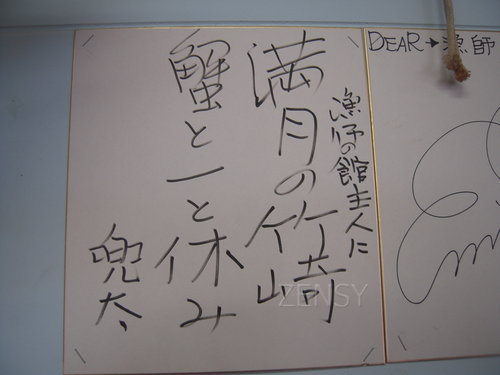 DEAR→漁師
漁師の館主人に
満月の竹崎
蟹と一と休み
兜太
ZENSY